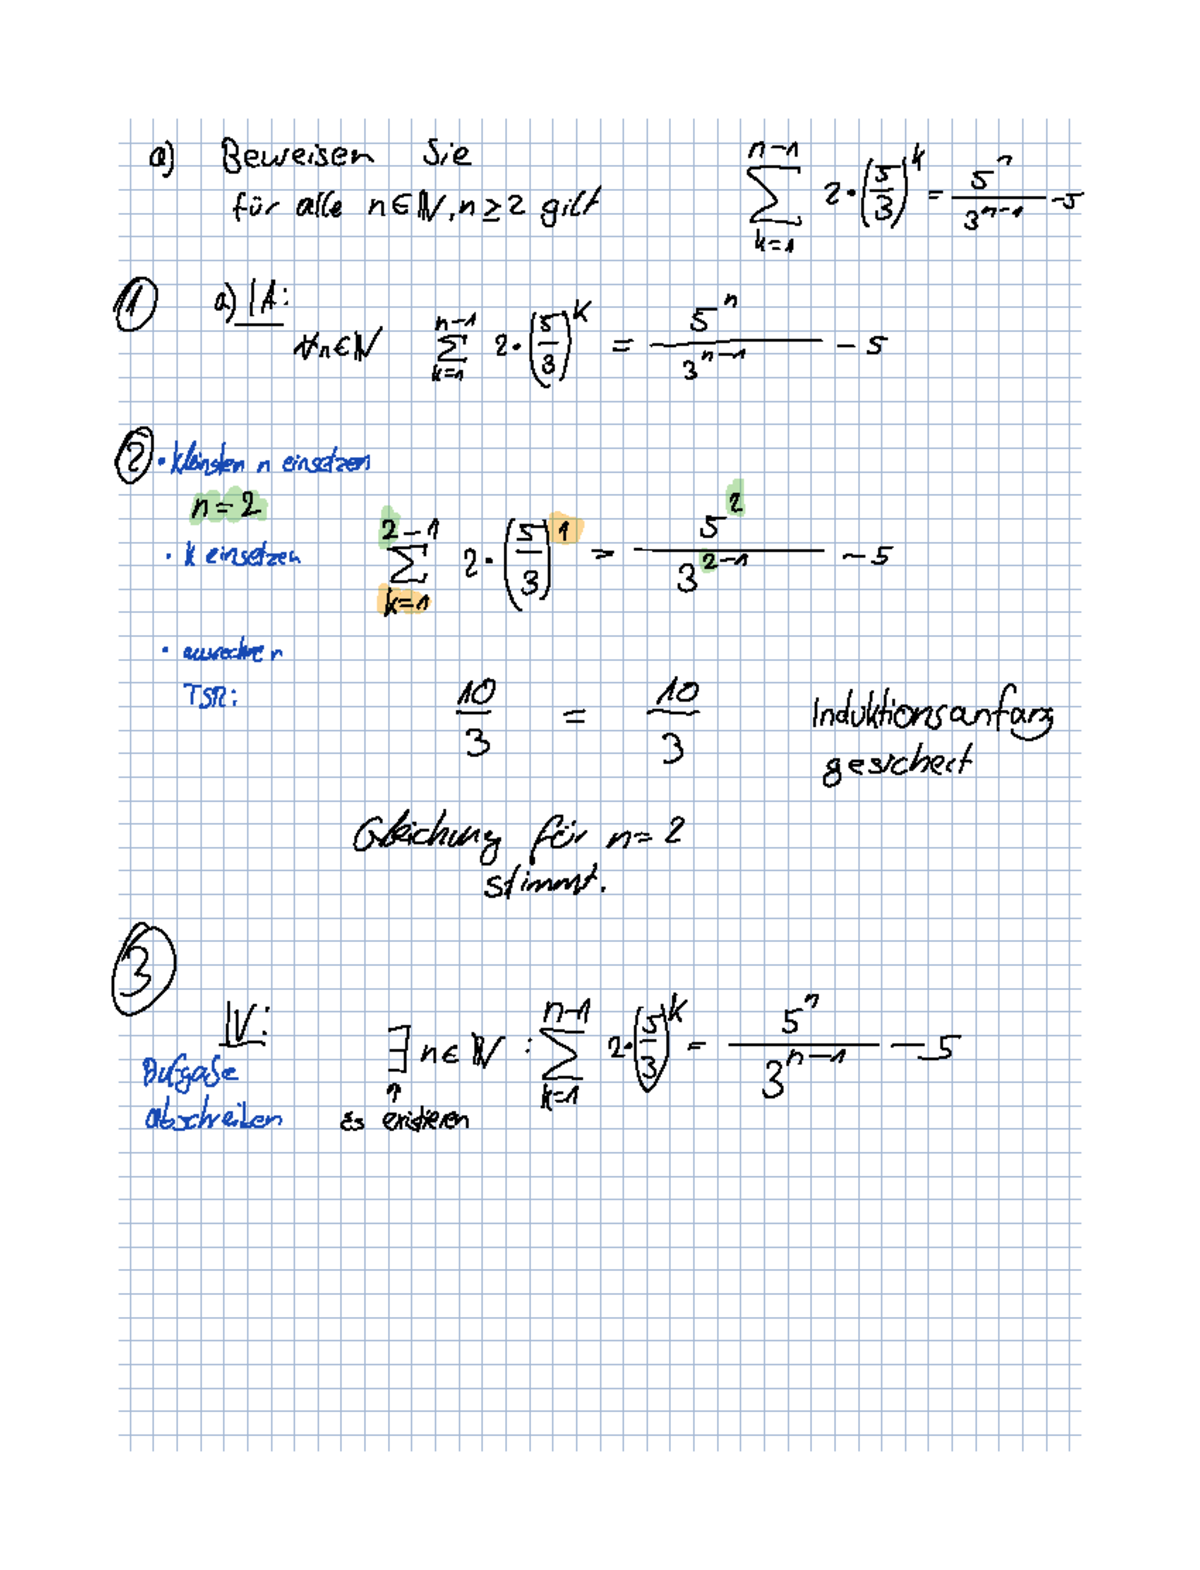 a) Beweisen Sie
für alle n∈ℕ, n≥2 gilt ∑_{k=1}^{n-1} 2·(5/3)^k = 5^n/3^{n-1} -5
① a) IA:
∀n∈ℕ ∑_{k=1}^{n-1} 2·(5/3)^k = 5^n/3^{n-1} - 5
② • kleinsten n einsetzen
n=2
• k einsetzen ∑_{k=1}^{2-1} 2·(5/3)^1 = 5^2/3^{2-1} - 5
• ausrechnen
TSR: 10/3 = 10/3 Induktionsanfang
gesichert
Gleichung für n=2
stimmt.
③
IV: ∃ n∈ℕ : ∑_{k=1}^{n-1} 2·(5/3)^k = 5^n/3^{n-1} - 5
Aufgabe ↑
abschreiben es existieren